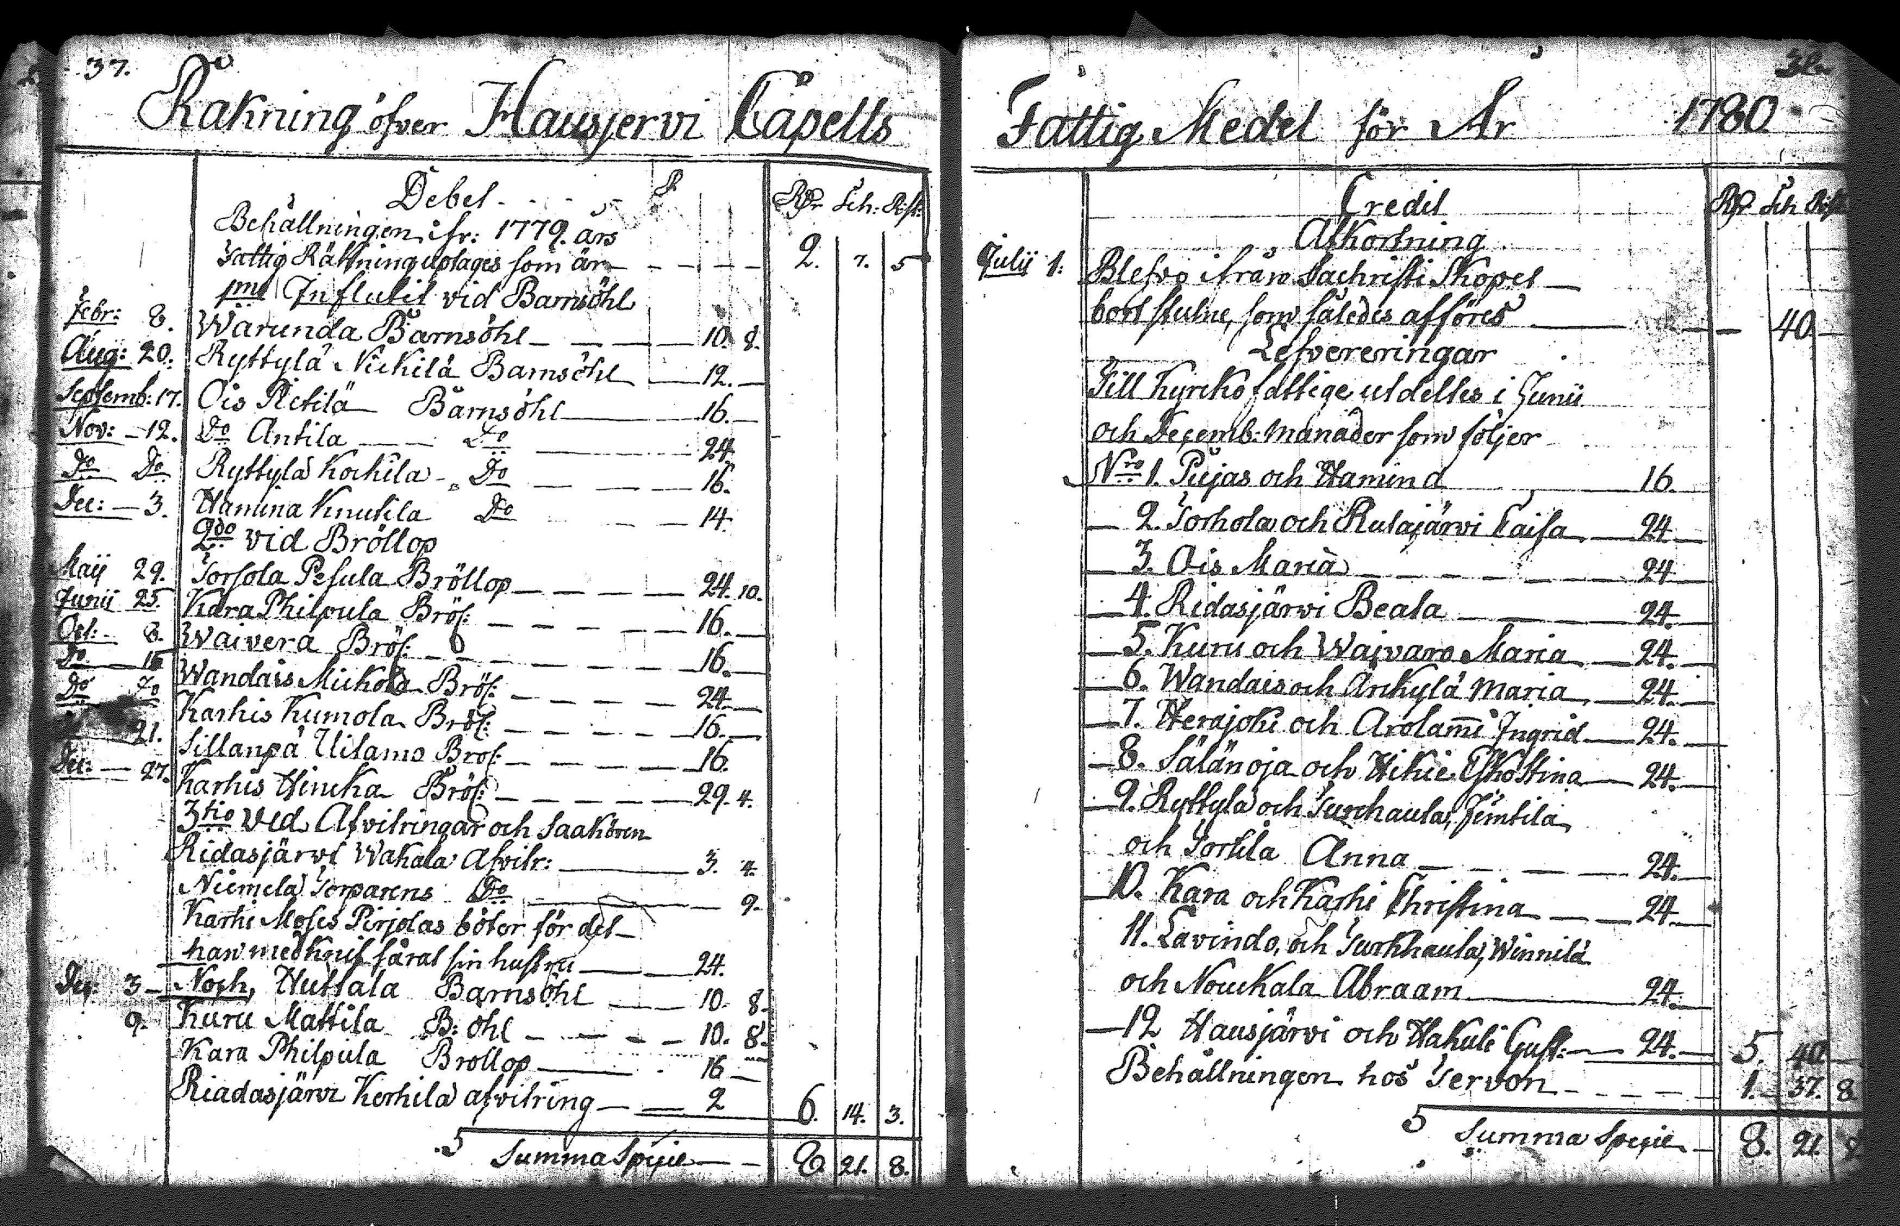 37.
Räkning öfver Hausjervi Capells
Debet
Rdr Sch: Rst:
Behållningen ifr: 1779. års
Fattig Räkning uptages som är — — — 2. 7. 5
pmo Influtit vid Barnsöhl
Febr: 8. Warunda Barnsöhl — — — 10. 8.
Aug: 20. Ryttylä Nickilä Barnsöhl — 12. —
Septemb: 17. Ois Pietilä Barnsöhl — 16. —
Nov: — 12. Do Antila — Do — 24.
Do Do Ryttylä Kochila — Do — 16.
Dec: — 3. Hamina Knutila Do — 14.
2do vid Bröllop
Maij 29. Torhola Pesula Bröllop — — — 24. 10.
Junii 25. Kara Philpula Bröl: — — — 16. —
Oct: 8. Waivera Bröl: — — — 16. —
Do 15 Wandais Mickola Bröl: — — 24. —
Do Do Karhis Kumola Bröl: — — — 16. —
21. Sillanpä Uilamo Bröl: — — — 16.
Dec: — 27. Karhis Hincka Bröl: — — — 29. 4.
3tio Ved Afvitringar och Saakören
Ridasjärvi Wakala Afvitr: — 3. 4.
Niemelä Torparens Do — 9.
Karhi Moses Pirjolas böter för det
han med Knif sårat sin hustru — 24.
Dec: 3 — Noch, Huttala Barnsöhl — 10. 8.
9. Kuru Mattila B: öhl — — — 10. 8.
Kara Philpula Brollop — 16 —
Riadasjärvi Kerhilä afvitring — — 2 6. 14. 3.
5 Summa Specie — — 8. 21. 8.
38.
Fattig Medel för År 1780
Credit
Rdr Sch Rst
Afkortning
Julii 1. Blefvo ifrån Sachristi Skopet
bort stulne, som således afföres — 40. —
Lefvereringar
Till Kyrko fattige utdeltes i Junii
och Decemb: månader som följer
Nro 1. Piejas och Hamina — 16.
— 2. Torhola och Rutajärvi Caisa — 24.
— 3. Ois Maria — — — 24
— 4. Ridasjärvi Beata — 24.
— 5. Kuru och Waivara Maria — 24.
— 6. Wandais och Arckylä Maria — 24.
— 7. Herajoki och Arolammi Ingrid — 24.
— 8. Sälänoja och Hikie — 24.
— 9. Ryttylä och Turchaula, Jemtila
och Torkila Anna — — — 24.
— 10. Kara och Karhi Christina — — 24.
11. Lavindo, och Turkhaula, Winnilä
och Noukala Abraam — 24.
— 12 Hausjärvi och Hakuli Gust: — 24. — 5. 40 —
Behållningen hos Tervon — — — 1. 37. 8
5 Summa Specie — 8. 21. 8